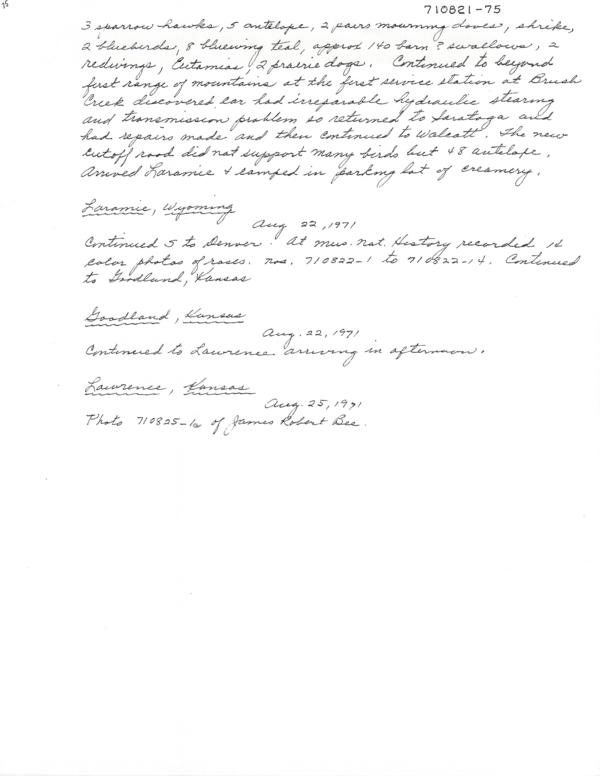 75
710821-75
3 sparrow hawks, 5 antelope, 2 pairs mourning doves, shrike,
2 bluebirds, 8 bluewing teal, approx 140 barn? swallows, 2
redwings, Eutamias, 2 prairie dogs. Continued to beyond
first range of mountains at the first service station at Brush
Creek discovered car had irreparable hydraulic stearing
and transmission problem so returned to Saratoga and
had repairs made and then continued to Walcott. The new
cutoff road did not support many birds but 48 antelope.
Arrived Laramie & camped in parking lot of creamery.
Laramie, Wyoming
Aug 22, 1971
Continued S to Denver. At mus. nat. History recorded 14
color photos of roses. nos. 710822-1 to 710822-14. Continued
to Goodland, Kansas
Goodland, Kansas
Aug. 22, 1971
Continued to Lawrence arriving in afternoon.
Lawrence, Kansas
Aug. 25, 1971
Photo 710825-1a of James Robert Bee.